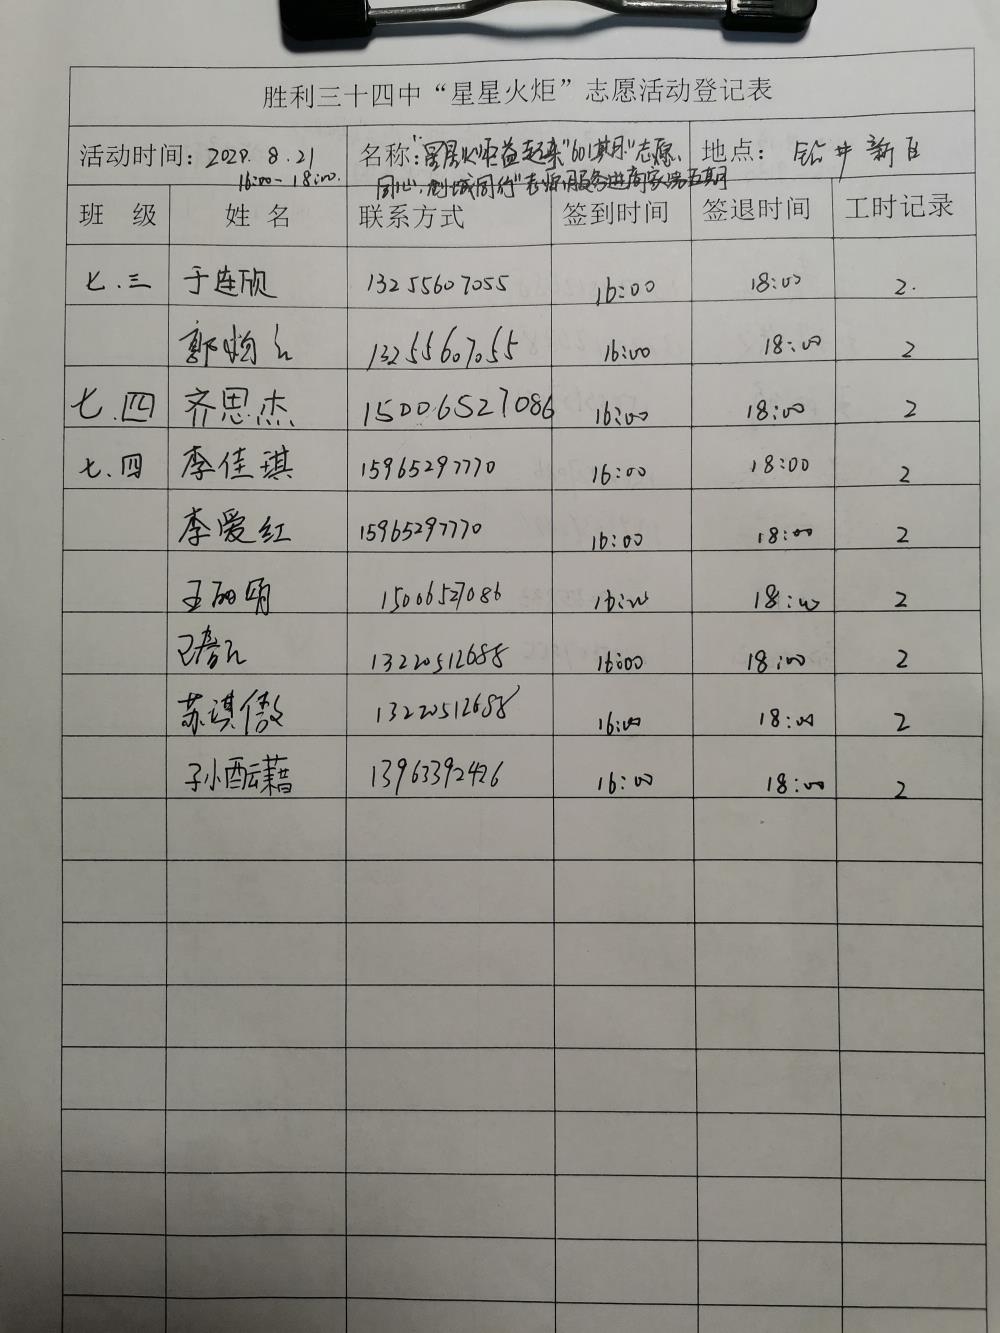 胜利三十四中“星星火炬”志愿活动登记表
活动时间：2020.8.21 名称：“星星火炬益起来”601其乐”志愿 地点：钻井新区
16:00-18:00. 同心,创城同行”志愿服务进商家第五期
班 级 姓 名 联系方式 签到时间 签退时间 工时记录
七.三 于连欣 13255607055 16:00 18:00 2.
郭 13255607055 16:00 18:00 2
七.四 齐思杰 15006527086 16:00 18:00 2
七.四 李佳琪 15965297770 16:00 18:00 2
李爱红 15965297770 16:00 18:00 2
王丽娟 15006527086 16:00 18:00 2
13220512688 16:00 18:00 2
苏琪傲 13220512688 16:00 18:00 2
孙酝藉 13963392426 16:00 18:00 2